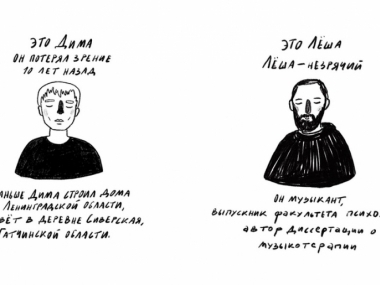 ЭТО ДИМА
ОН ПОТЕРЯЛ ЗРЕНИЕ
10 ЛЕТ НАЗАД
ДИМА СТРОИЛ ДОМА
ЛЕНИНГРАДСКОЙ ОБЛАСТИ,
В ДЕРЕВНЕ СИВЕРСКАЯ,
ОБЛАСТИ.
ЭТО ЛЁША
ЛЁША – НЕЗРЯЧИЙ
ОН МУЗЫКАНТ,
ВЫПУСКНИК ФАКУЛЬТЕТА
АВТОР ДИССЕРТАЦИИ О
МУЗЫКОТЕРАПИИ